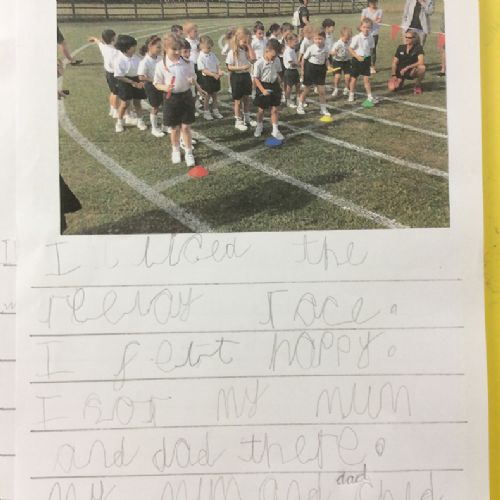 I liced the
reelay race.
I felt happy.
I sor my mum
and dad there.
my mum and dad